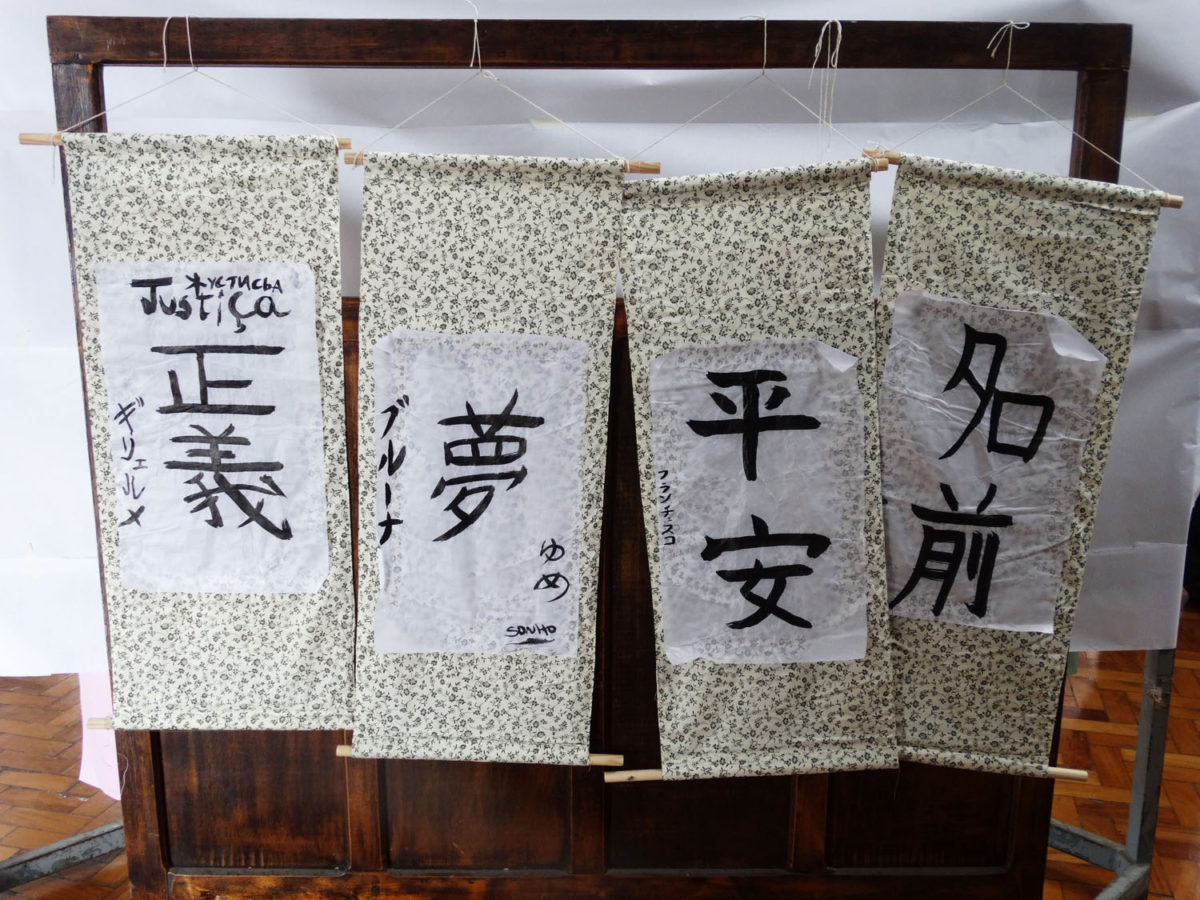 жустисва
Justiça
正義
ギリェルメ
夢
ブルーナ
ゆめ
SONHO
平安
フランチスコ
名前